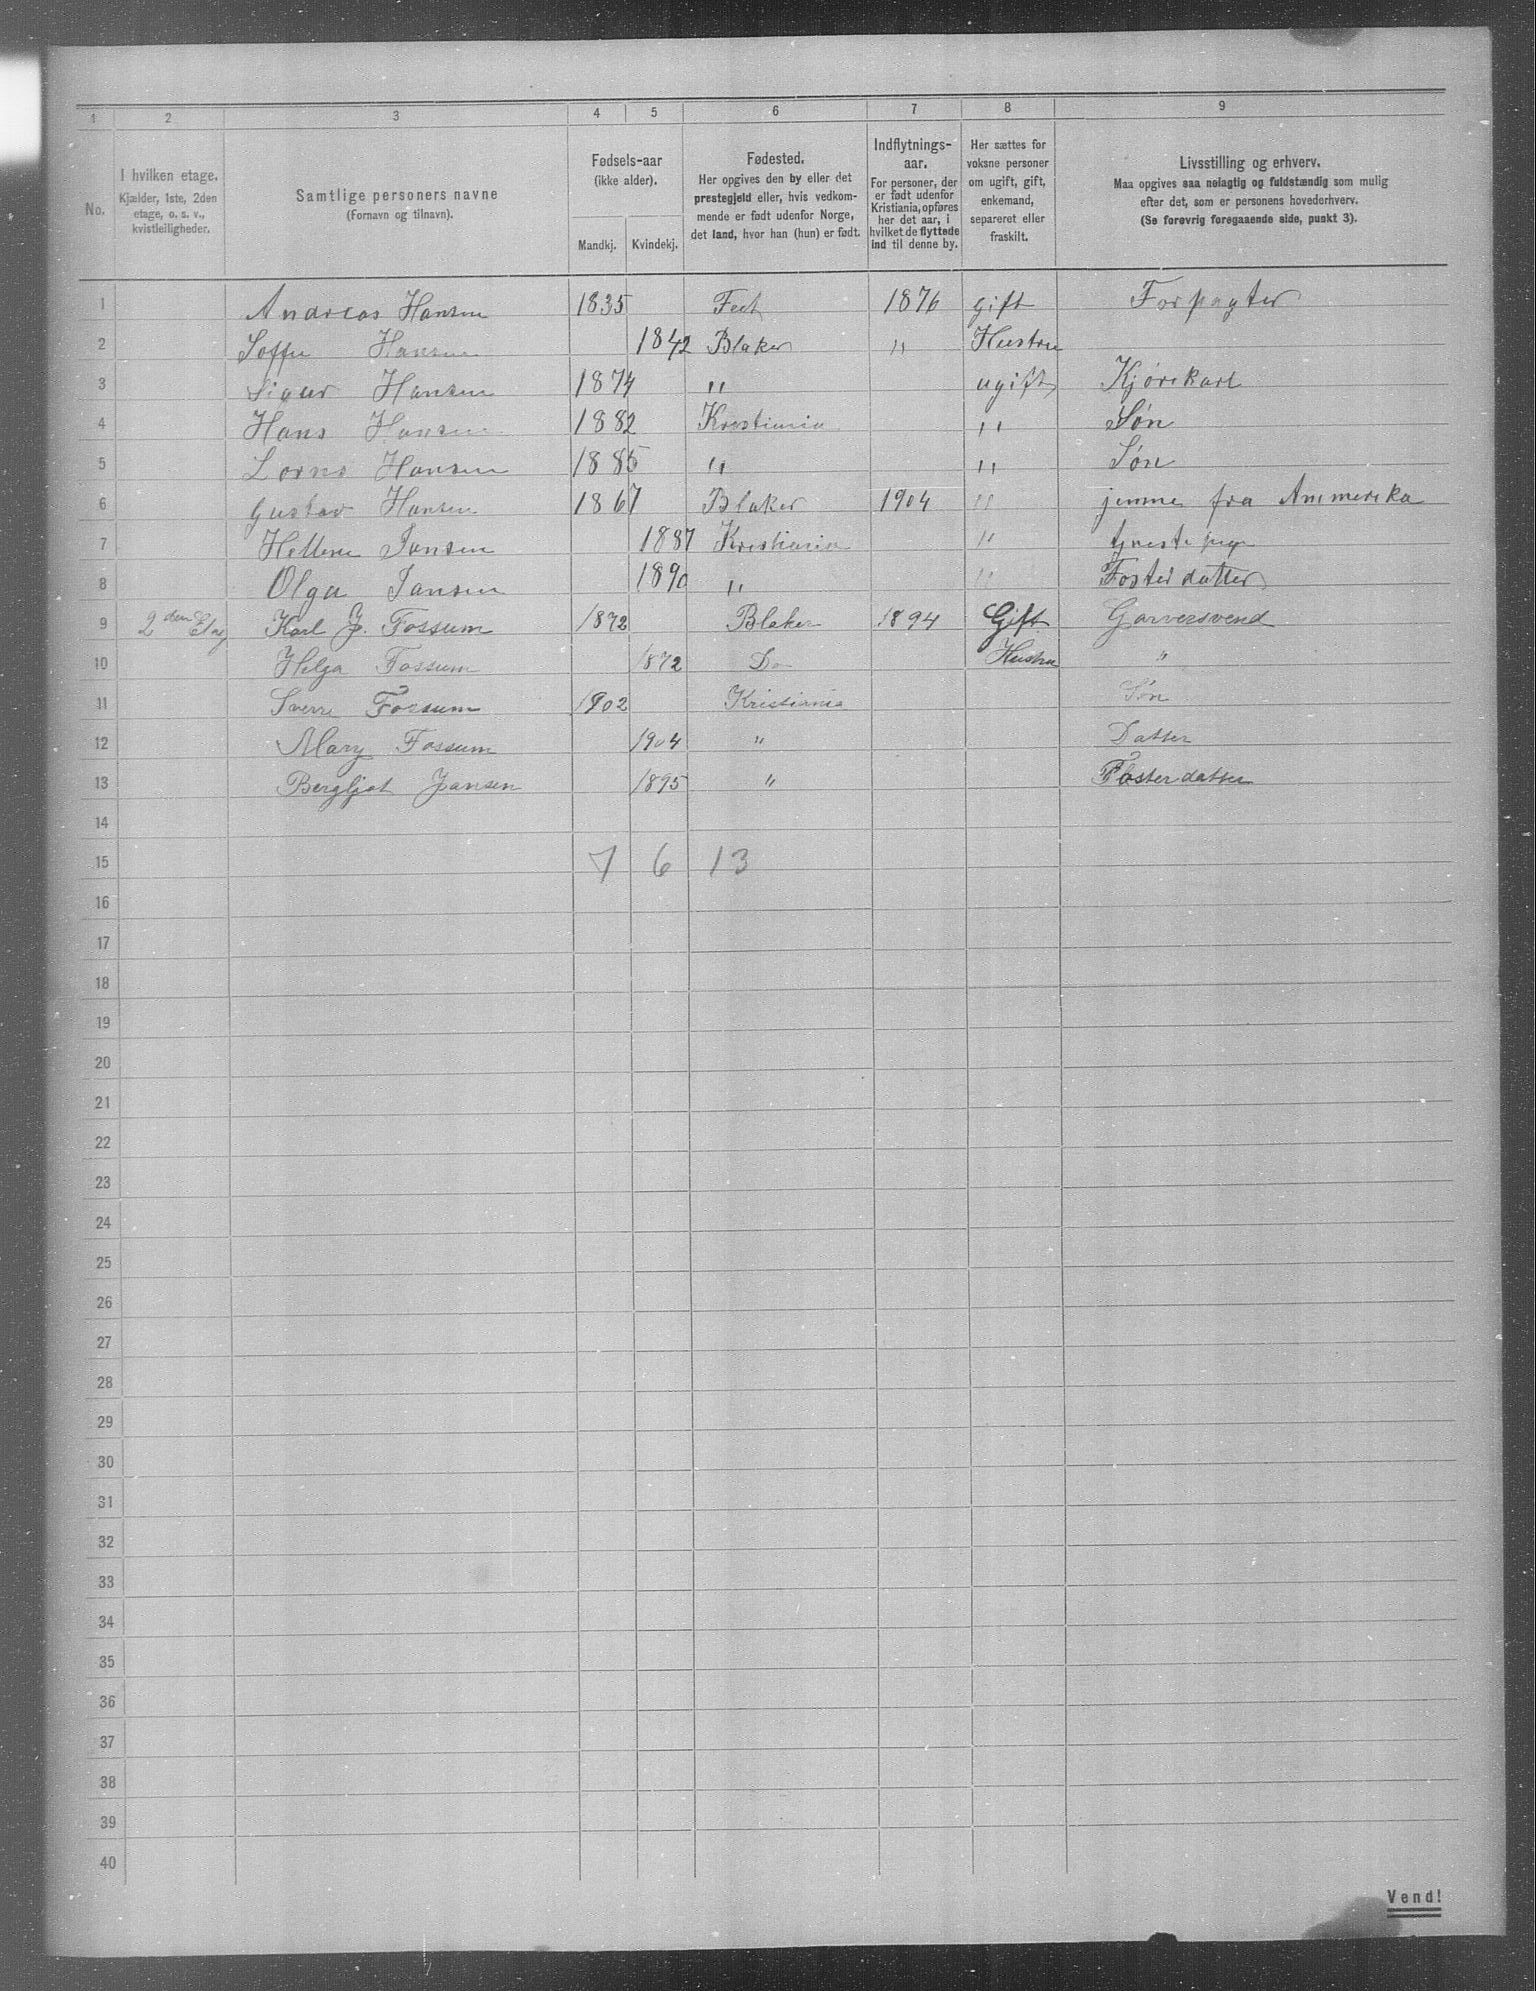 1 2 3 4 5 6 7 8 9
No.
I hvilken etage.
Kjælder, 1ste, 2den
etage, o. s. v.,
kvistleiligheder.
Samtlige personers navne
(Fornavn og tilnavn).
Fødsels-aar
(ikke alder).
Mandkj. Kvindekj.
Fødested.
Her opgives den by eller det
prestegjeld eller, hvis vedkom-
mende er født udenfor Norge,
det land, hvor han (hun) er født.
Indflytnings-
aar.
For personer, der
er født udenfor
Kristiania, opføres
her det aar, i
hvilket de flyttede
ind til denne by.
Her sættes for
voksne personer
om ugift, gift,
enkemand,
separeret eller
fraskilt.
Livsstilling og erhverv.
Maa opgives saa nøiagtig og fuldstændig som mulig
efter det, som er personens hovederhverv.
(Se forøvrig foregaaende side, punkt 3).
1 Andreas Hansen 1835 Fet 1876 gift Forpagter
2 Soffie Hansen 1842 Blaker " Hustru
3 Sigur Hansen 1874 " ugift Kjørekarl
4 Hans Hansen 1882 Krestiania " Søn
5 Lorns Hansen 1885 " " Søn
6 Gustav Hansen 1867 Blaker 1904 " jemme fra Ammerika
7 Hellene Jansen 1887 Krestiania "
8 Olga Jansen 1890 " " Fosterdatter
9 2den Etag Karl J. Fossum 1872 Blaker 1894 Gift Garversvend
10 Helga Fossum 1872 Do Hustru "
11 Sverre Fossum 1902 Kristiania Søn
12 Mary Fossum 1904 " Datter
13 Bergljot Jansen 1895 " Fosterdatter
14
15 7 6 13
16
17
18
19
20
21
22
23
24
25
26
27
28
29
30
31
32
33
34
35
36
37
38
39
40
Vend!